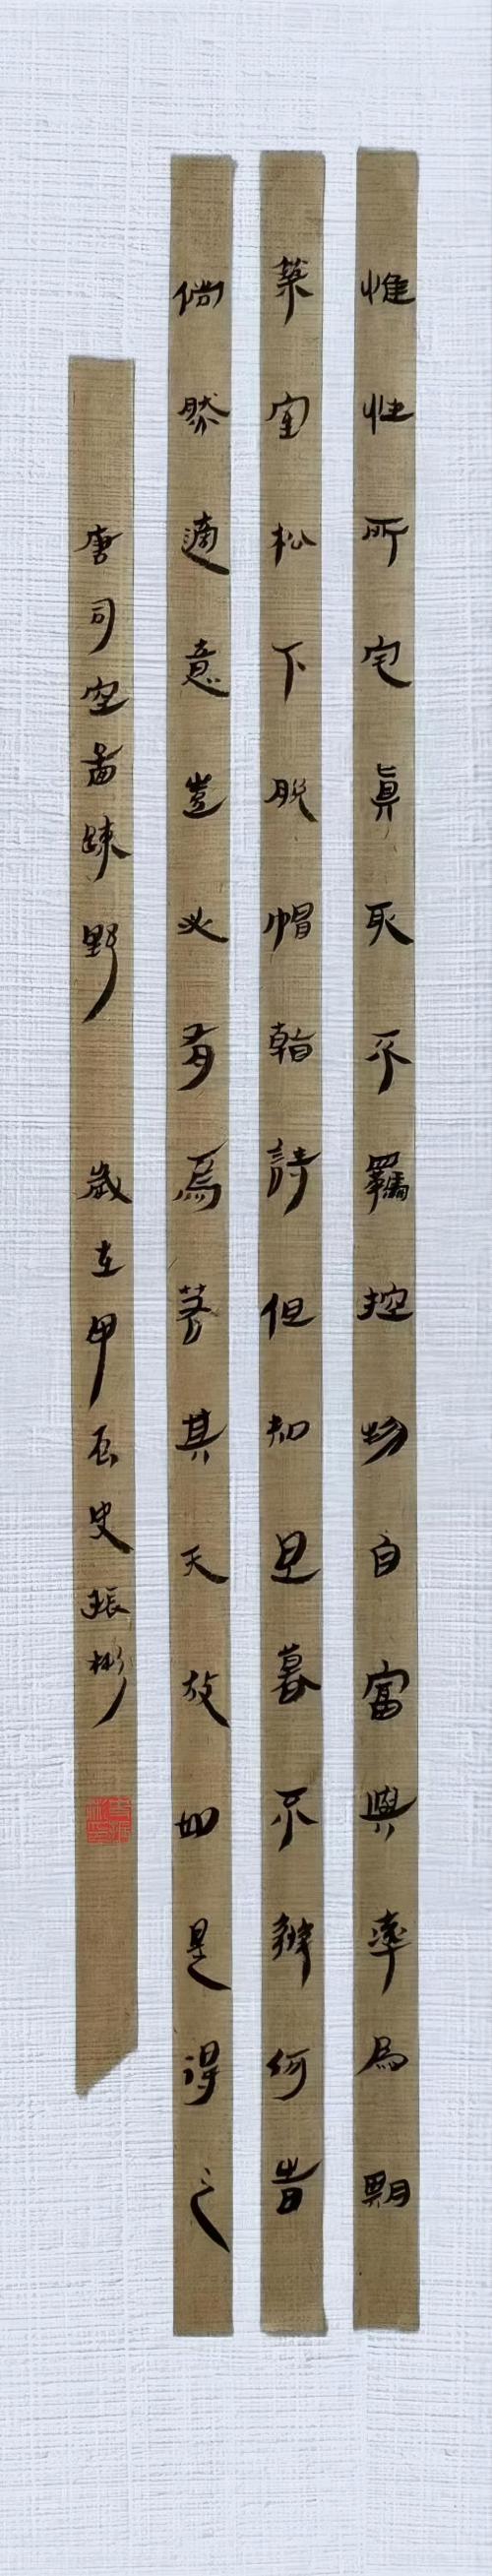 惟性所宅真取不羈控物自富與率為期
築室松下脫帽看詩但知旦暮不辨何時
倘然適意豈必有為若其天放如是得之
唐司空圖疎野 歲在甲辰史振彬